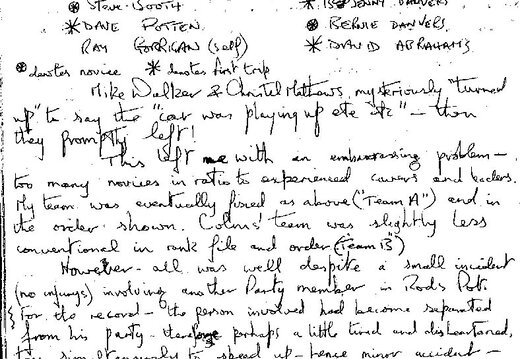 ⊛ Steve BOOTH * ISO JENNY DANVERS
* DAVE POTTEN ⊛ BERNIE DANVERS
RAY CORRIGAN (self) * DAVID ABRAHAMS
⊛ denotes novice * denotes first trip
Mike Walker & Christel Mathews, mysteriously "turned
up" to say the "car was playing up etc etc" – then
they promptly left!
This left me with an embarrassing problem –
too many novices in ratio to experienced cavers and leaders.
My team was eventually fixed as above ("Team A") and in
the order shown. Colins' team was slightly less
conventional in rank file and order (Team "B")
However – all was well despite a small incident
(no injurys) involving another Party member in Rods Pot.
{ For the record – the person involved had become separated
from his party – therefore perhaps a little tired and disheartened,
to speed up – hence minor accident –